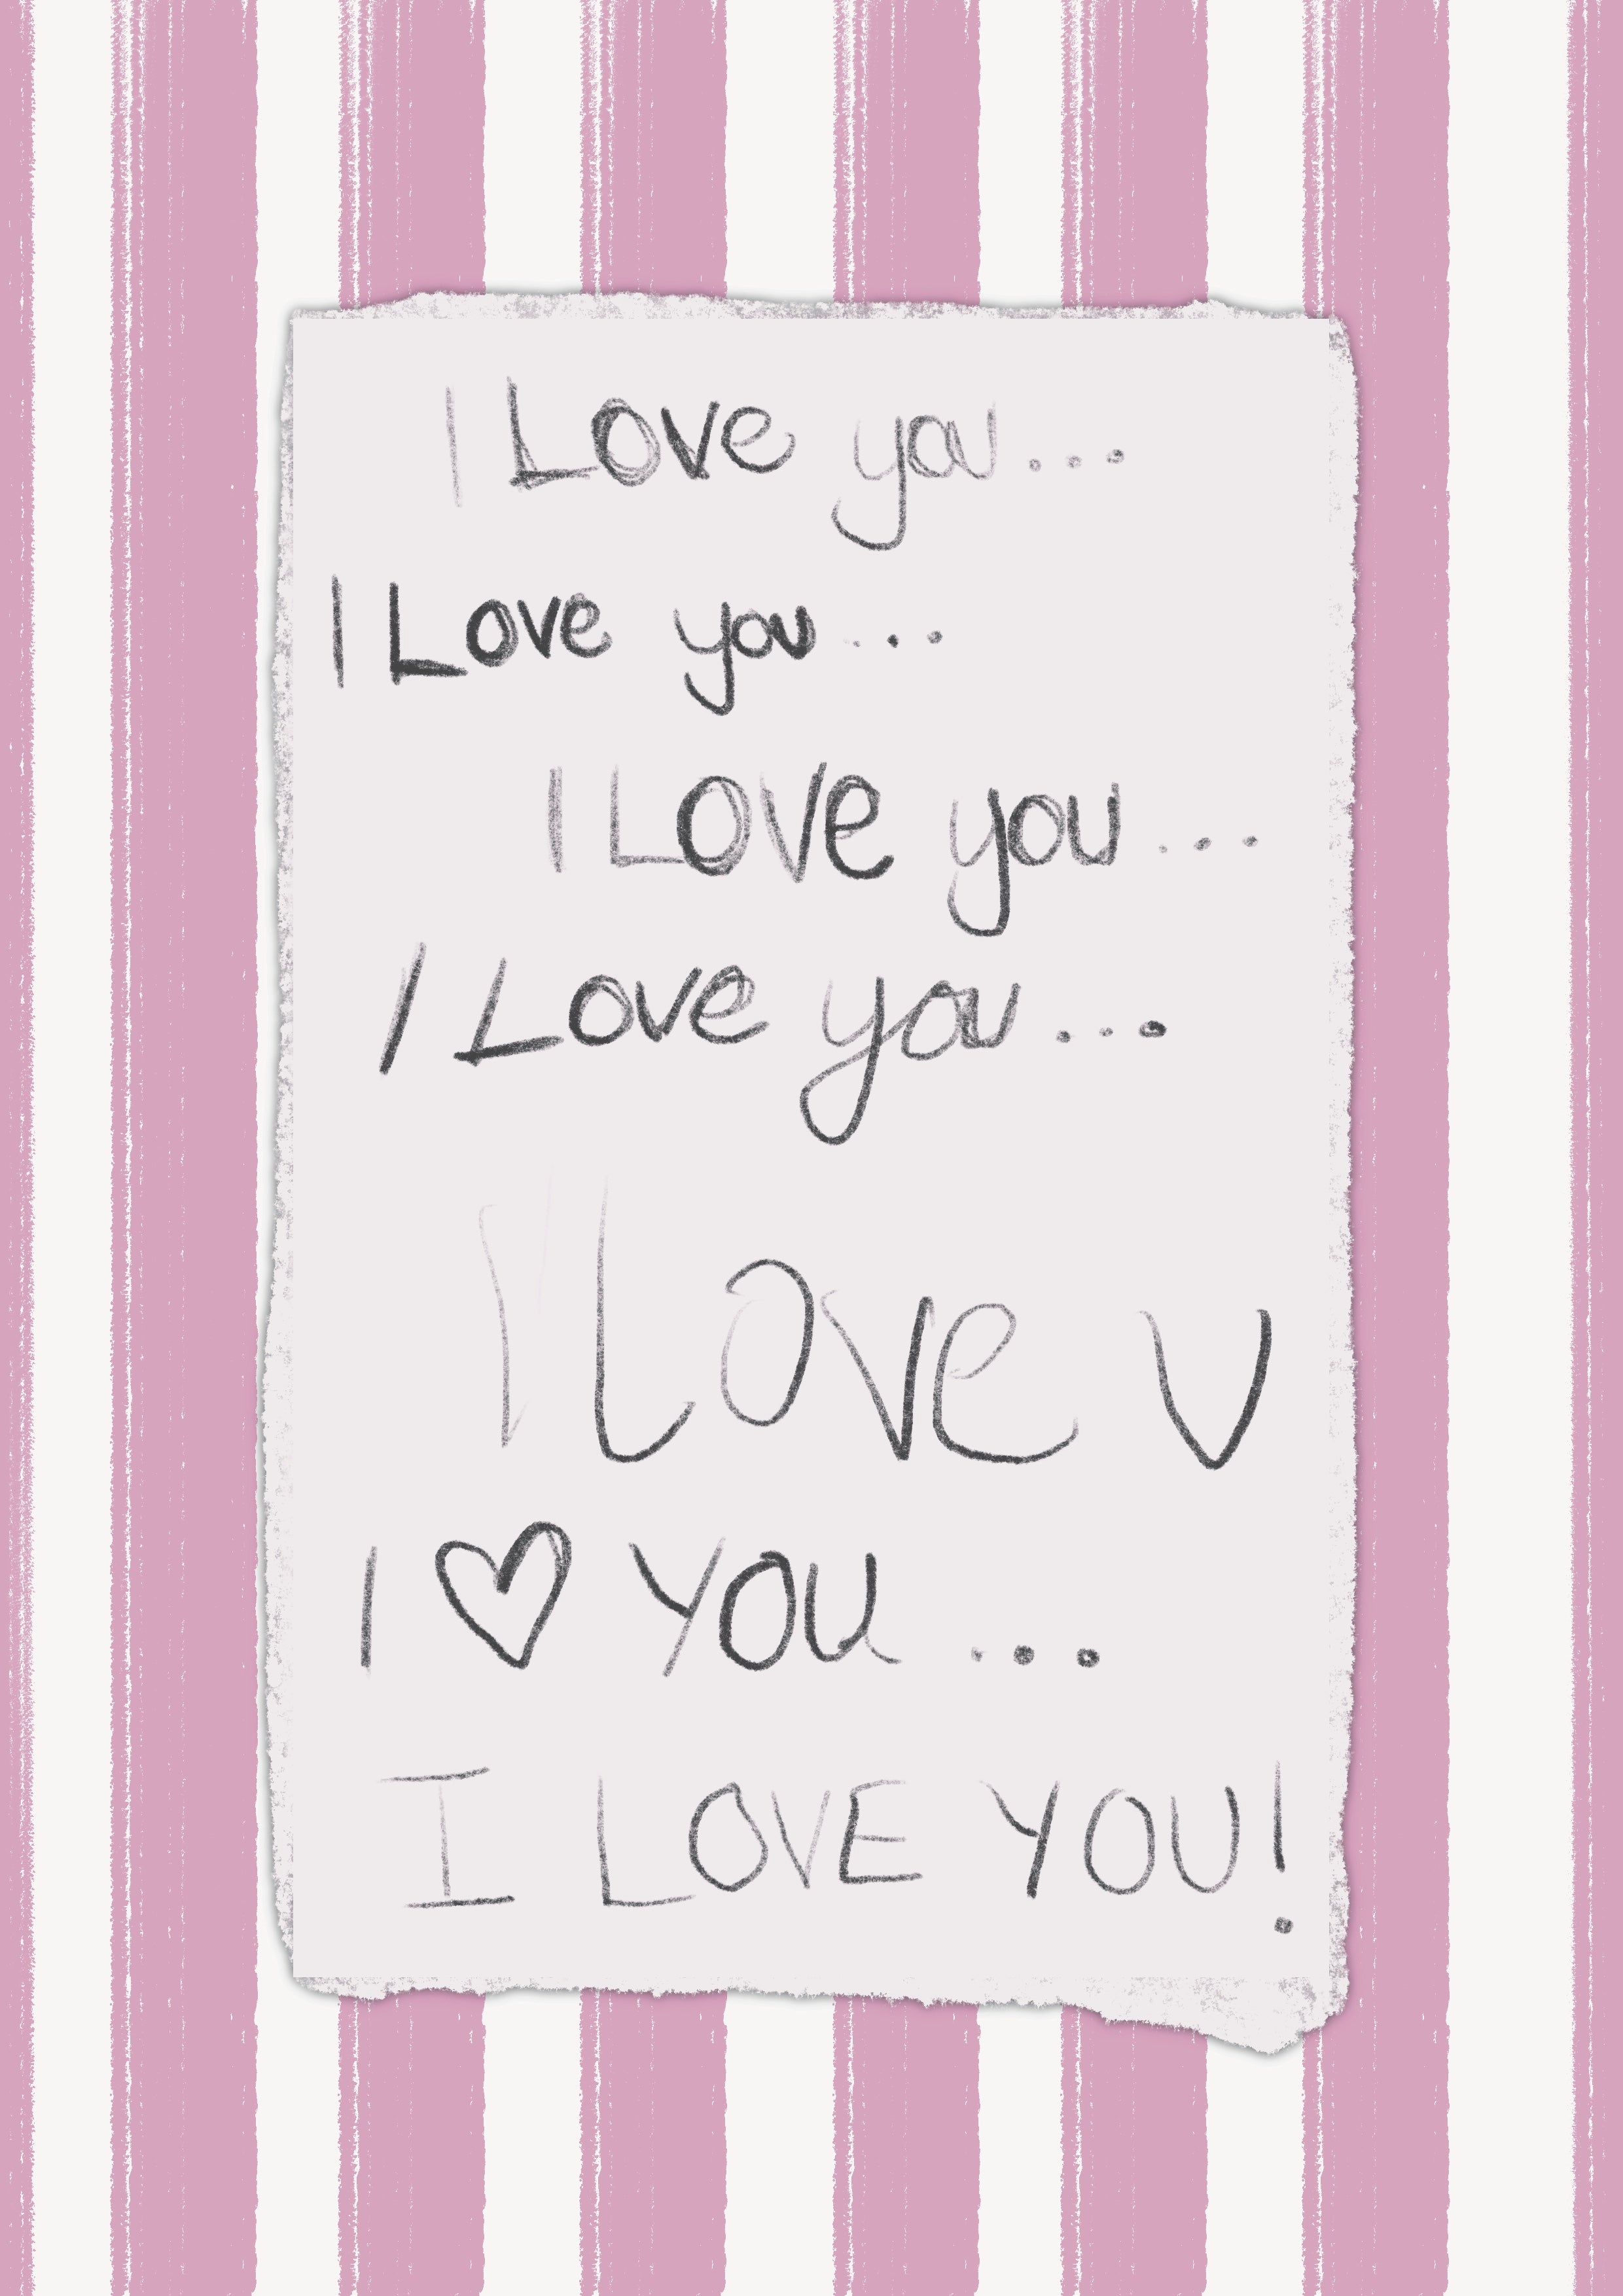 I Love you...
I Love you...
I Love you...
I Love you...
I Love U
I ♡ YOU...
I LOVE YOU!